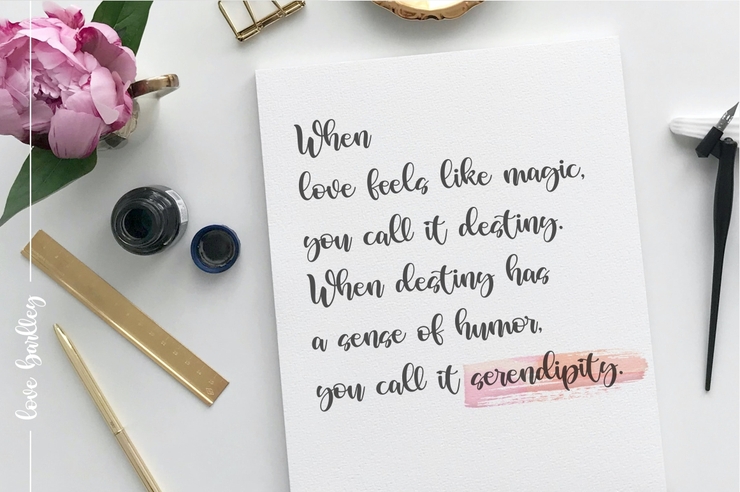 When
love feels like magic,
you call it destiny.
When destiny has
a sense of humor,
you call it serendipity.
love Barlley